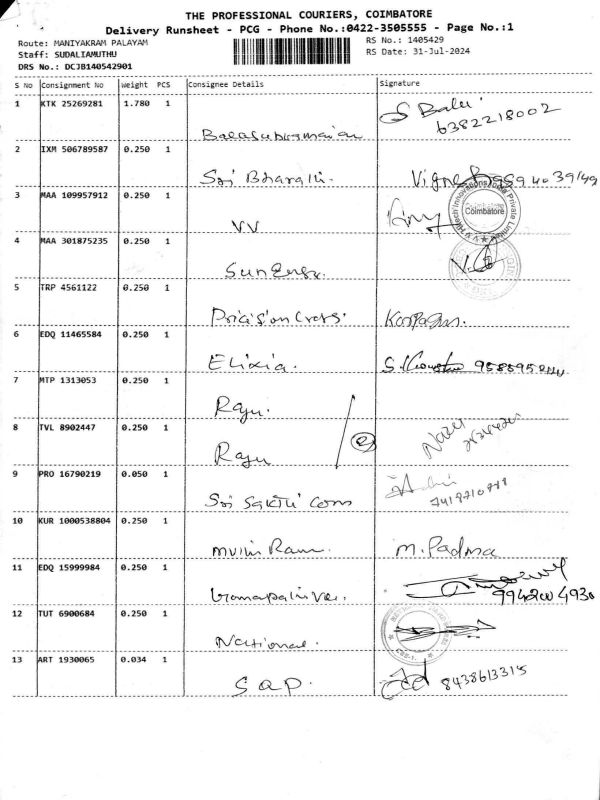 THE PROFESSIONAL COURIERS, COIMBATORE
Delivery Runsheet - PCG - Phone No.:0422-3505555 - Page No.:1
Route: MANIYAKRAM PALAYAM RS No.: 1405429
Staff: SUDALIAMUTHU RS Date: 31-Jul-2024
DRS No.: DCJB140542901
S No Consignment No Weight PCS Consignee Details Signature
1 KTK 25269281 1.780 1
Balasubramanian S Balu
6382218002
2 IXM 506789587 0.250 1
Sri Bharathi.
3 MAA 109957912 0.250 1
VV Coimbatore
4 MAA 301875235 0.250 1
Sun Energy.
5 TRP 4561122 0.250 1
6 EDQ 11465584 0.250 1
Elixia.
7 MTP 1313053 0.250 1
Raju.
8 TVL 8902447 0.250 1
Raju
9 PRO 16790219 0.050 1
Sri Sakthi Cons
10 KUR 1000538804 0.250 1
Muthi Ram. M. Padma
11 EDQ 15999984 0.250 1
12 TUT 6900684 0.250 1
National.
13 ART 1930065 0.034 1
S a p. 8438613315